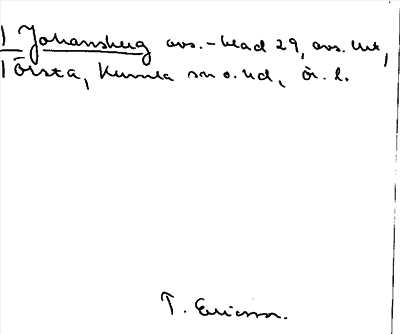 1 Johansberg avs. - blad 29, avs. utr,
1 Törsta, Kumla sn o. hd, Ör. l.
T. Ericsson.